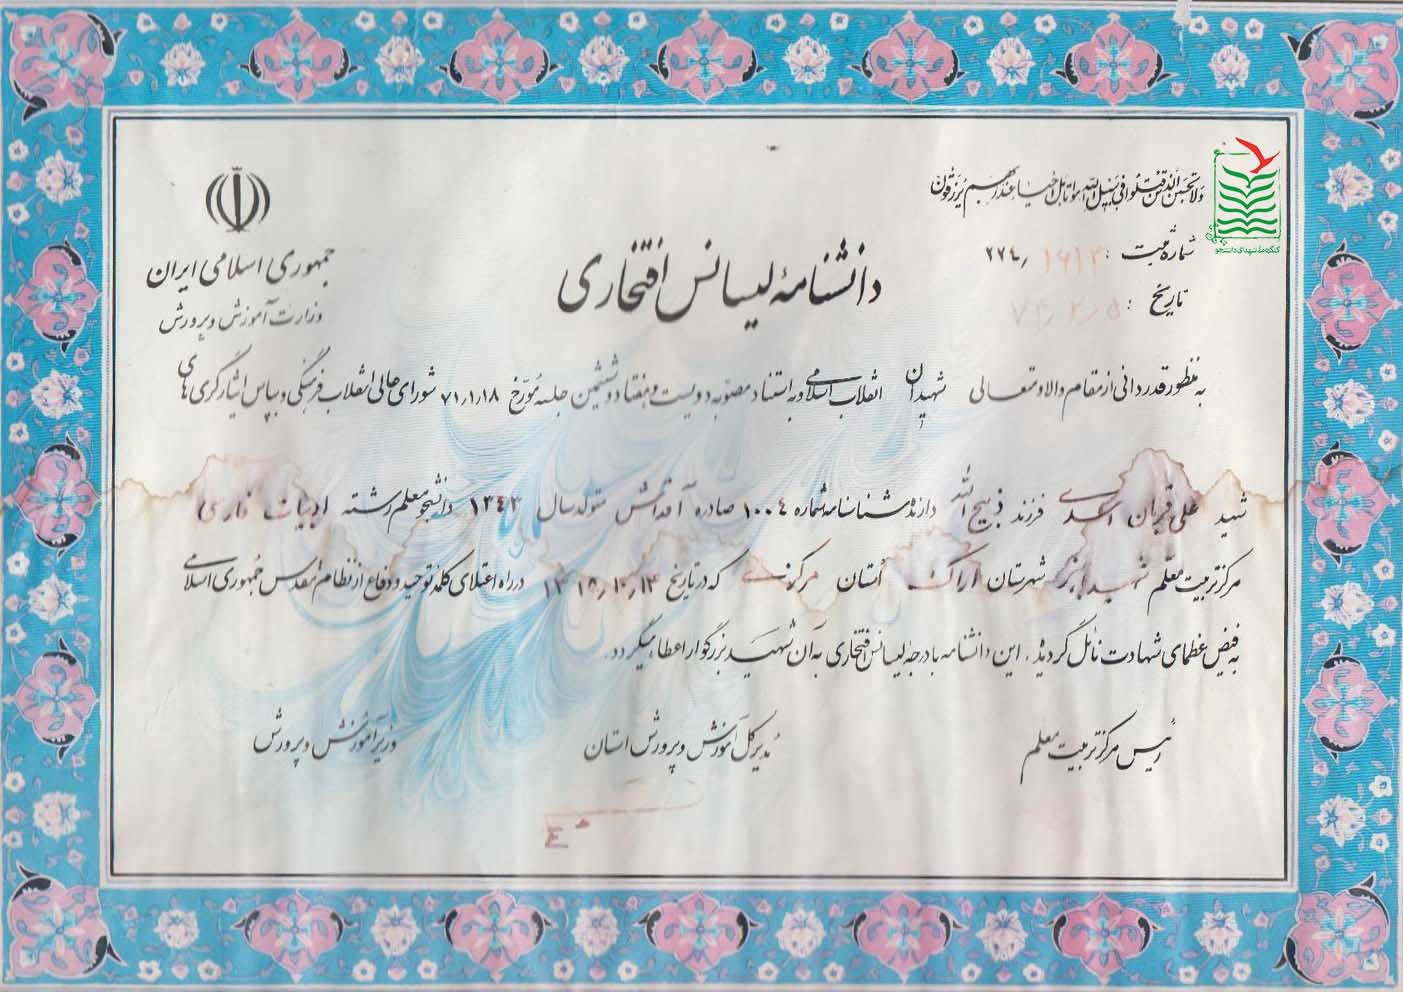 ولا تحسبن الذین قتلوا فی سبیل الله امواتا بل احیاء عند ربهم یرزقون
کنگره ملی شهدای دانشجو
شماره ثبت : ۲۷٤٫ ۱۶۱۳
تاریخ : ۷۳٫۲٫۵
جمهوری اسلامی ایران
وزارت آموزش و پرورش
دانشنامهٔ لیسانس افتخاری
به منظور قدردانی از مقام والا و متعالی شهیدان انقلاب اسلامی و به استناد مصوبه دویست و هفتاد و ششمین جلسه مورّخ ۷۱٫۱٫۱۸ شورای عالی انقلاب فرهنگی و بپاس ایثارگری های
شهید علی قربان اسدی فرزند ذبیح الله دارنده شناسنامه شماره ۱۰۰٤ صادره متولد سال ۱۳٤۳ دانشجو معلم رشته ادبیات فارسی
مرکز تربیت معلم شهید باهنر شهرستان اراک استان مرکزی که در تاریخ در راه اعتلای کلمه توحید و دفاع از نظام مقدس جمهوری اسلامی
به فیض عظمای شهادت نائل گردید . این دانشنامه با درجه لیسانس افتخاری به آن شهید بزرگوار اعطاء میگردد .
رئیس مرکز تربیت معلم
مدیر کل آموزش و پرورش استان
وزیر آموزش و پرورش